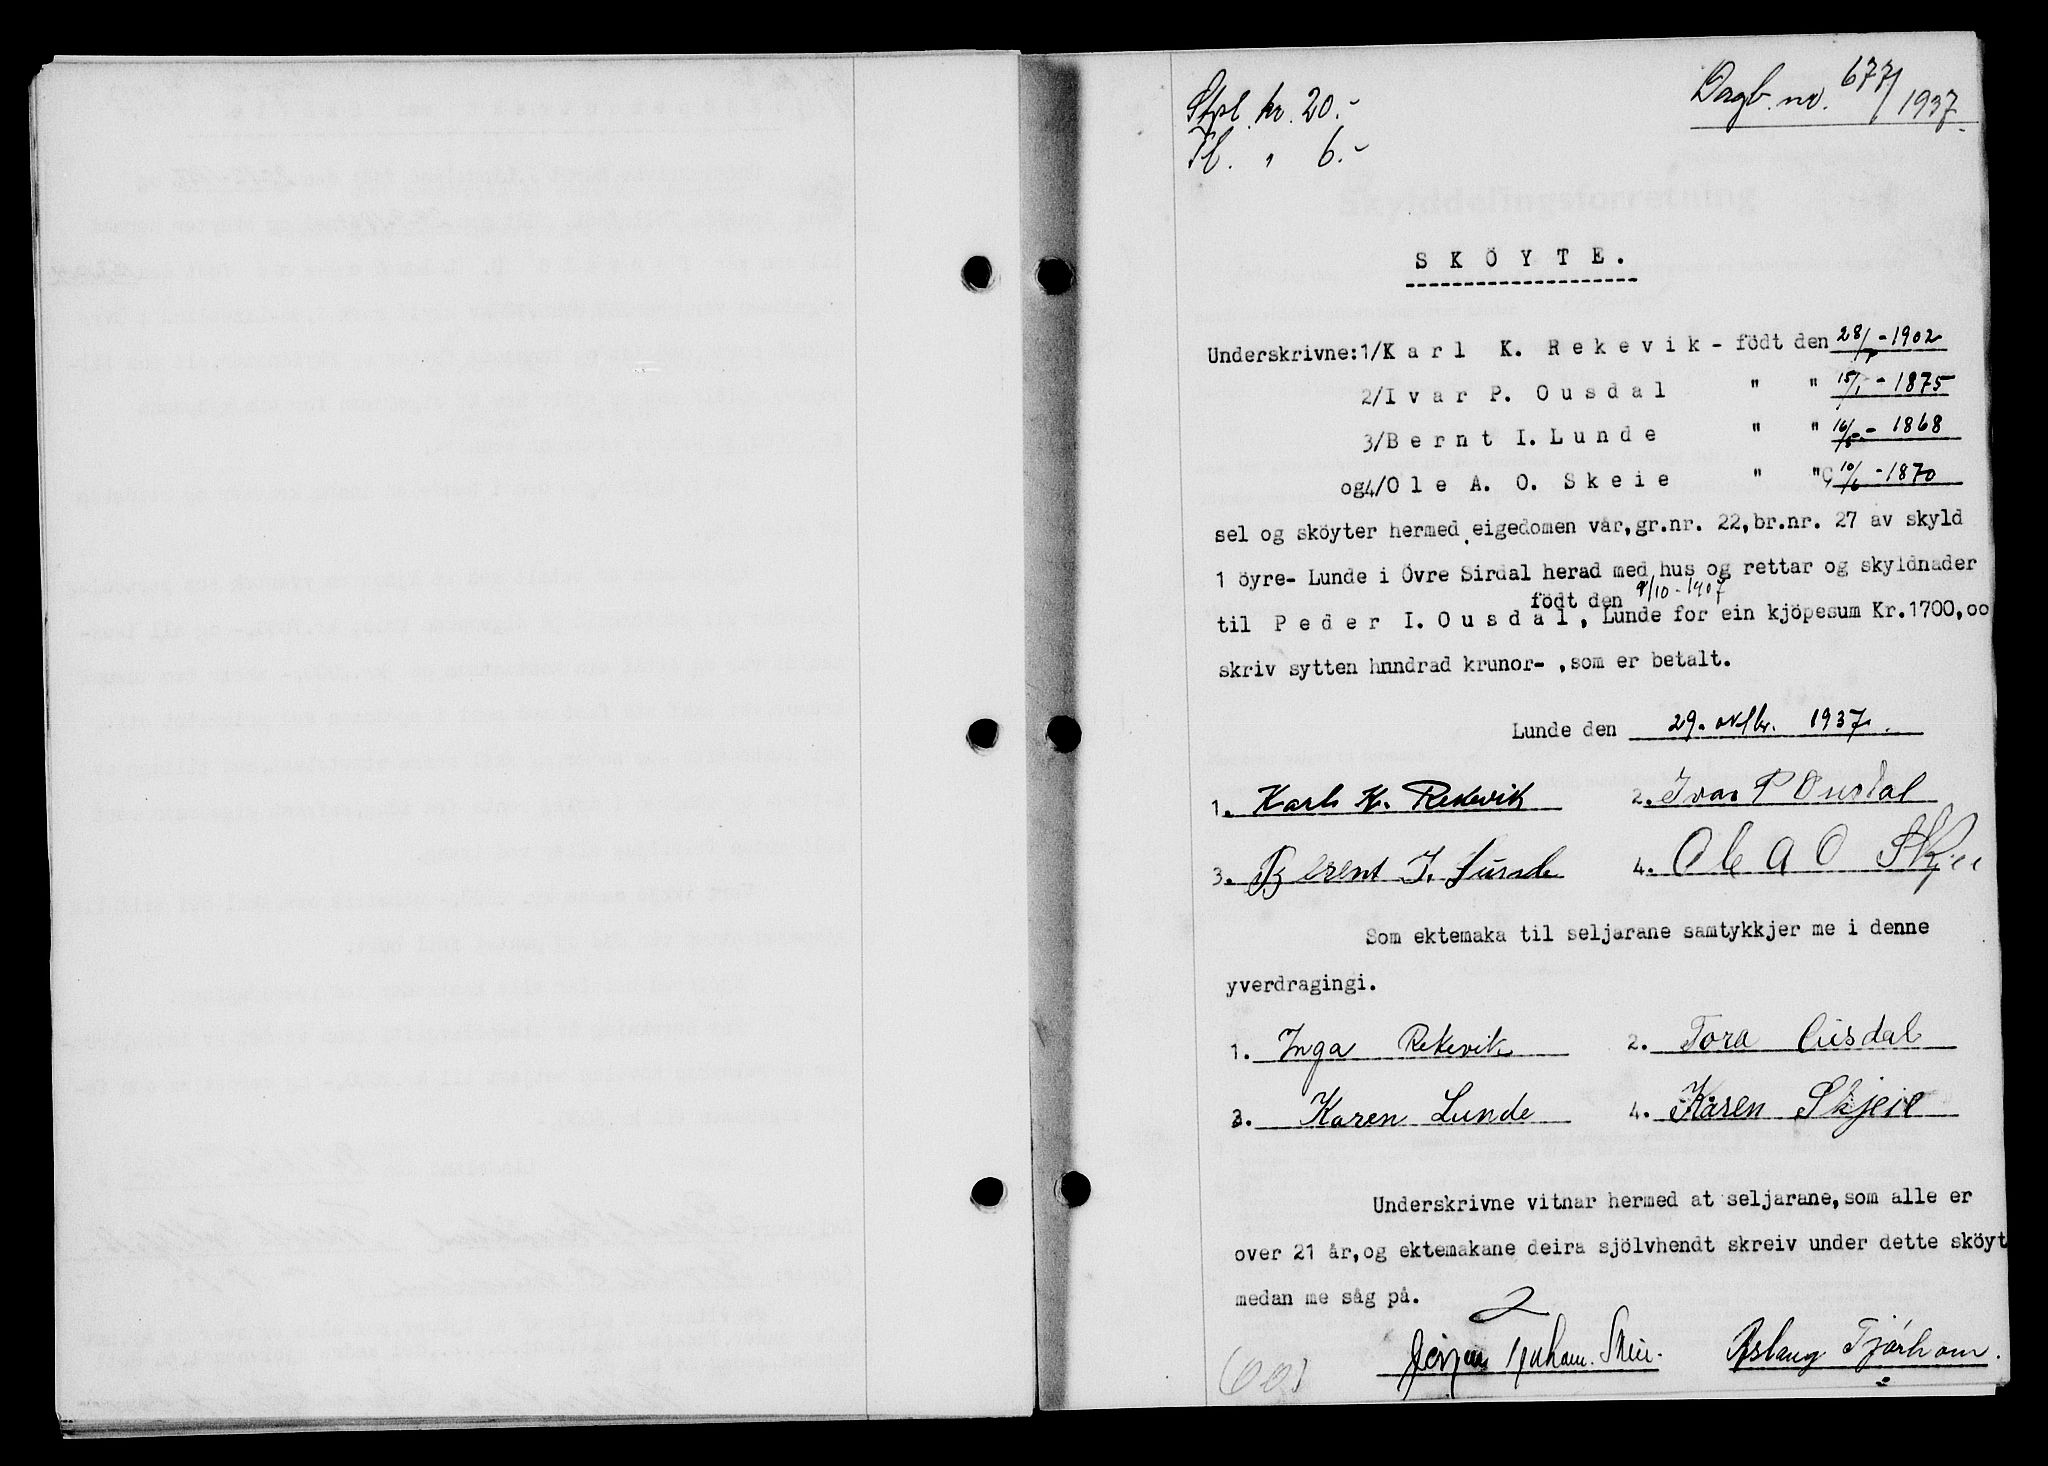 Dagb. nr. 677/1937.
Stpl. kr. 20.-
Tl. " 6.-
SKÖYTE.
Underskrivne: 1/Karl K. Rekevik - födt den 28/7 - 1902
2/Ivar P. Ousdal " " 15/1 - 1875
3/Bernt I. Lunde " " 16/5 - 1868
og4/Ole A. O. Skeie " " 10/6 - 1870
sel og sköyter hermed eigedomen vår, gr.nr. 22, br.nr. 27 av skyld
1 öyre- Lunde i Övre Sirdal herad med hus og rettar og skyldnader
födt den 9/10-1907
til Peder I. Ousdal, Lunde for ein kjöpesum Kr.1700,oo
skriv sytten hnndrad krunor-, som er betalt.
Lunde den 29. oktbr. 1937.
1. Karl K. Rekevik 2. Ivar P Ousdal
3. Berent I. Lunde 4. Ole A O Skjeie
Som ektemaka til seljarane samtykkjer me i denne
yverdragingi.
1. Inga Rekevik 2. Tora Ousdal
3. Karen Lunde 4. Karen Skjeie
Underskrivne vitnar hermed at seljarane, som alle er
over 21 år, og ektemakane deira sjölvhendt skreiv under dette sköyt
medan me såg på.
Aslaug Tjörhom.